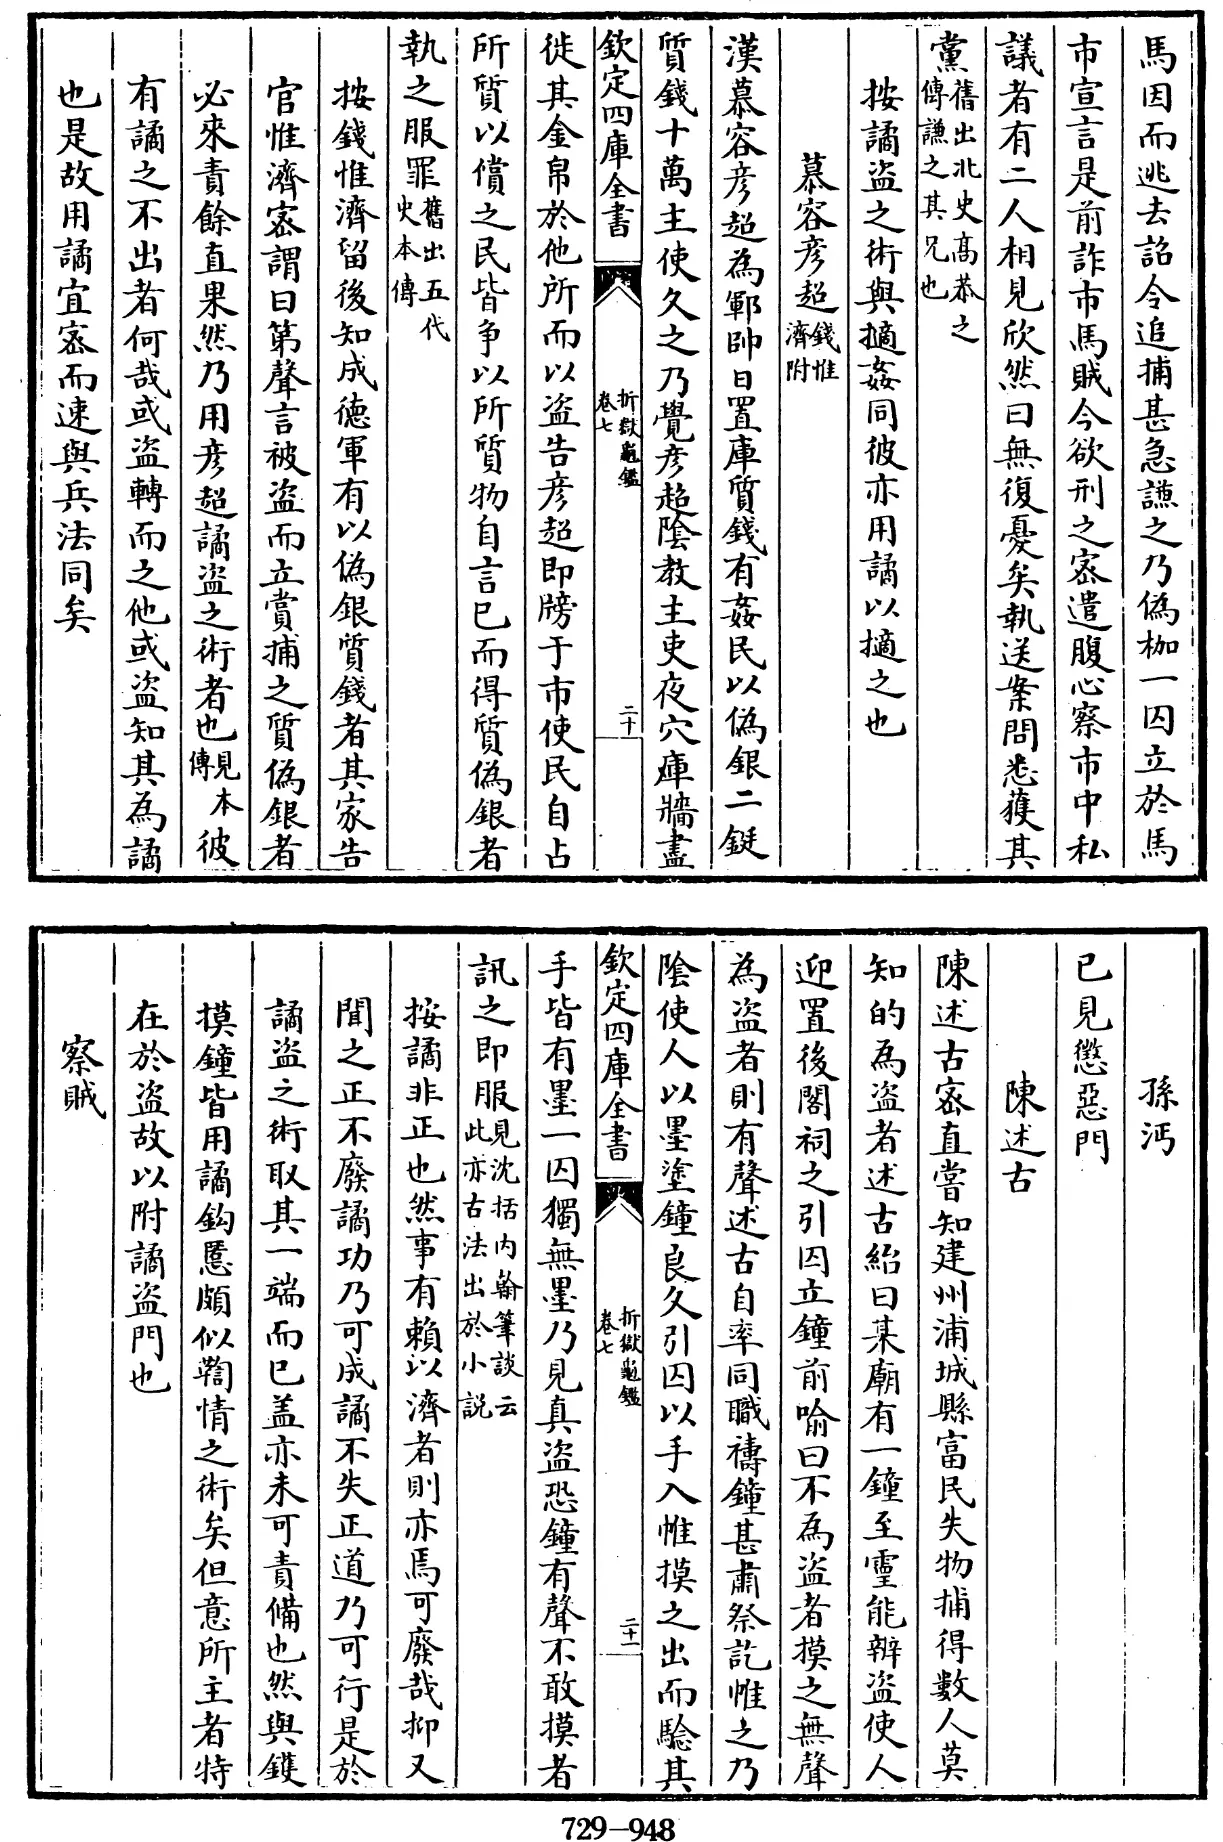 馬因而逃去詔令追捕甚急謙之乃偽枷一囚立於馬
市宣言是前詐市馬賊今欲刑之密遣腹心察市中私
議者有二人相見欣然曰無復憂矣執送案問悉獲其
黨舊出北史髙恭之傳謙之其兄也
按譎盜之術與擿姦同彼亦用譎以擿之也
慕容彦超錢惟濟附
漢慕容彦超為鄆帥日置庫質錢有姦民以偽銀二鋌
質錢十萬主吏久之乃覺彦超陰教主吏夜穴庫牆盡
欽定四庫全書
折獄龜鑑
卷七
二十
徙其金帛於他所而以盜告彦超即牓于市使民自占
所質以償之民皆争以所質物自言已而得質偽銀者
執之服罪舊出五代史本傳
按錢惟濟留後知成德軍有以偽銀質錢者其家告
官惟濟密謂曰第聲言被盜而立賞捕之質偽銀者
必來責餘直果然乃用彦超譎盜之術者也見本傳彼
有譎之不出者何哉或盜轉而之他或盜知其為譎
也是故用譎宜密而速與兵法同矣
孫沔
已見懲惡門
陳述古
陳述古密直嘗知建州浦城縣富民失物捕得數人莫
知的為盜者述古紿曰某廟有一鐘至靈能辨盜使人
迎置後閣祠之引囚立鐘前喻曰不為盜者摸之無聲
為盜者則有聲述古自率同職禱鐘甚肅祭訖帷之乃
陰使人以墨塗鐘良久引囚以手入帷摸之出而驗其
欽定四庫全書
折獄龜鑑
卷七
二十一
手皆有墨一囚獨無墨乃見真盜恐鐘有聲不敢摸者
訊之即服見沈括内翰筆談云此亦古法出於小説
按譎非正也然事有賴以濟者則亦焉可廢哉抑又
聞之正不廢譎功乃可成譎不失正道乃可行是於
譎盜之術取其一端而已盖亦未可責備也然與鑊
摸鐘皆用譎鈎慝頗似鞫情之術矣但意所主者特
在於盜故以附譎盜門也
察賊
729-948